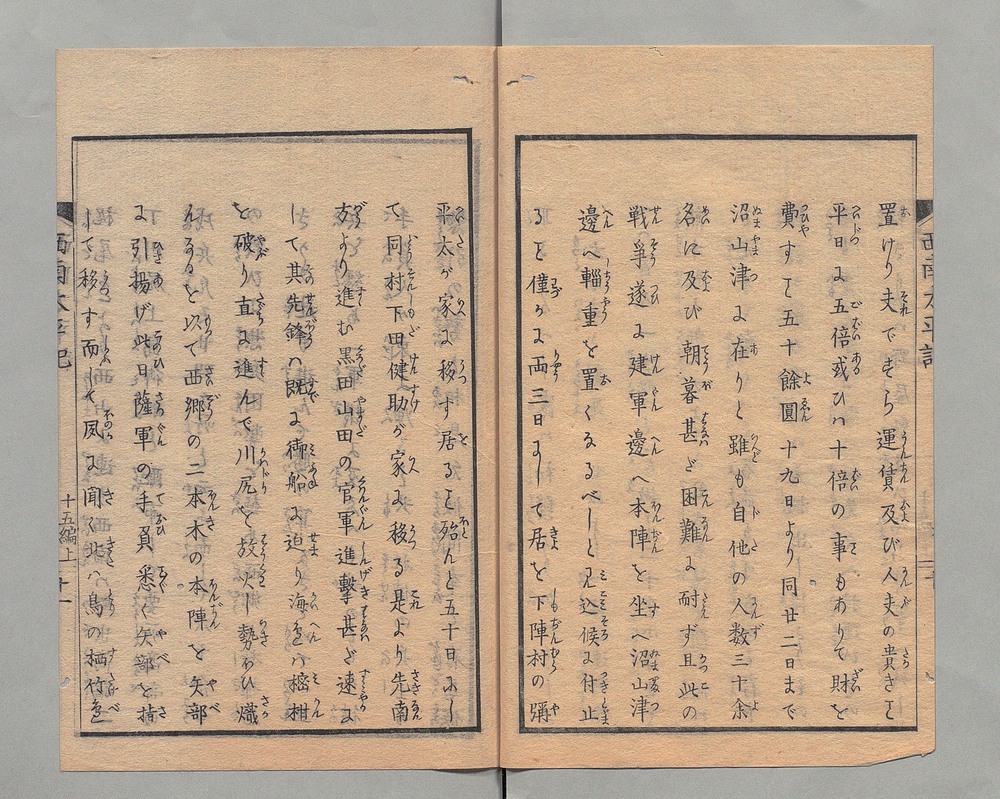 置けり夫でさら運賃及び人夫の貴きこと
平日に五倍或ひハ十倍の事もありて財を
費すこと五十餘圓十九日より同廿二日まで
沼山津に在りと雖も自他の人数三十余
名に及び朝暮甚ど困難に耐ず且此の
戦爭遂に建軍邊へ本陣を坐へ沼山津
邊へ輜重を置くなるべしと見込候に付止
ること僅かに両三日にして居を下陣村の彌
平太が家に移す居ること殆んと五十日にし
て同村下田健助が家に移る是より先南
方より進む黒田山田の官軍進撃甚ど速に
して其先鋒ハ既に御船に迫り海邉ハ樒柑
を破り直に進んで川尻を放火し勢ひ熾
んなるを以て西郷の二本木の本陣を矢部
に引揚げ此日薩軍の手負悉く矢部を指
して移す而して夙に聞く此ハ鳥の栖竹邉
西南太平記
西南太平記
十五編上
十一